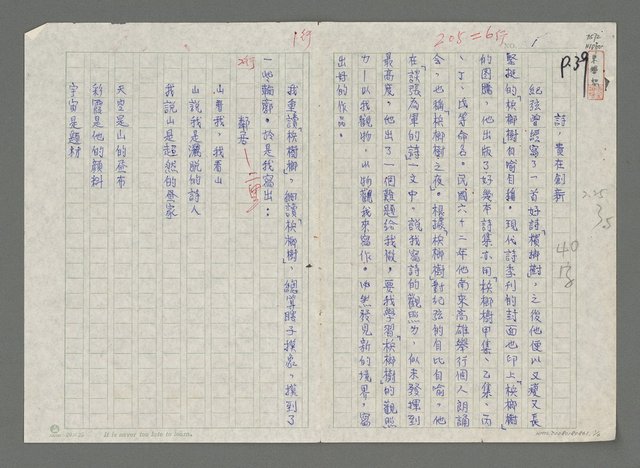 P.39
NO. 1
詩 貴在創新
紀弦曾經寫了一首好詩「檳榔樹」，之後他便以又瘦又長
堅挺的「梹榔樹」自喻自稱。現代詩季刊的封面也印上「梹榔樹」
的圖騰，他出版了好幾本詩集亦用「梹榔樹甲集、乙集、丙
、丁、戊等命名。民國六十二年他南來高雄舉行個人朗誦
會，也稱梹榔樹之夜。根據「梹榔樹」對紀弦的自比自喻，他
在「談張為軍的詩」一文中，說我寫詩的觀照力，似未發揮到
最高度，他出了一個難題給我做，要我學習「梹榔樹」的觀照
力—以我觀物，以物觀我來寫作。必然發見新的境界，寫
出好的作品。
205=6行
1行
我重讀「梹榔樹」，細讀「梹榔樹」，總算瞎子摸象，摸到了
一些輪廓。於是我寫出：
2行
鄰居 一二里
山看我，我看山
山說我是灑脫的詩人
我說山是超然的畫家
天空是山的畫布
彩霞是他的顏料
宇宙是題材
40
It is never too late to learn.